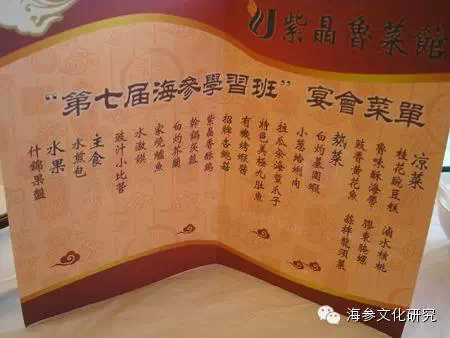 紫晶魯菜館
“第七届海參學習班” 宴會菜單
涼菜
桂花豌豆糕 滷水核桃
魯味酥海帶 膠東脆螺
豉香黄花魚 蒜拌龍須菜
熱菜
白灼基圍蝦
小葱蛤蜊肉
拉瓜汆海蜇爪子
特色美極九肚魚
有機烤蝦醬
招牌杏鮑菇
紫晶香酥鷄
幹鍋茯菰
白灼芥蘭
家燒鱸魚
水激
豉汁小比管
主食
水煎包
水果
什錦果盤
海参文化研究